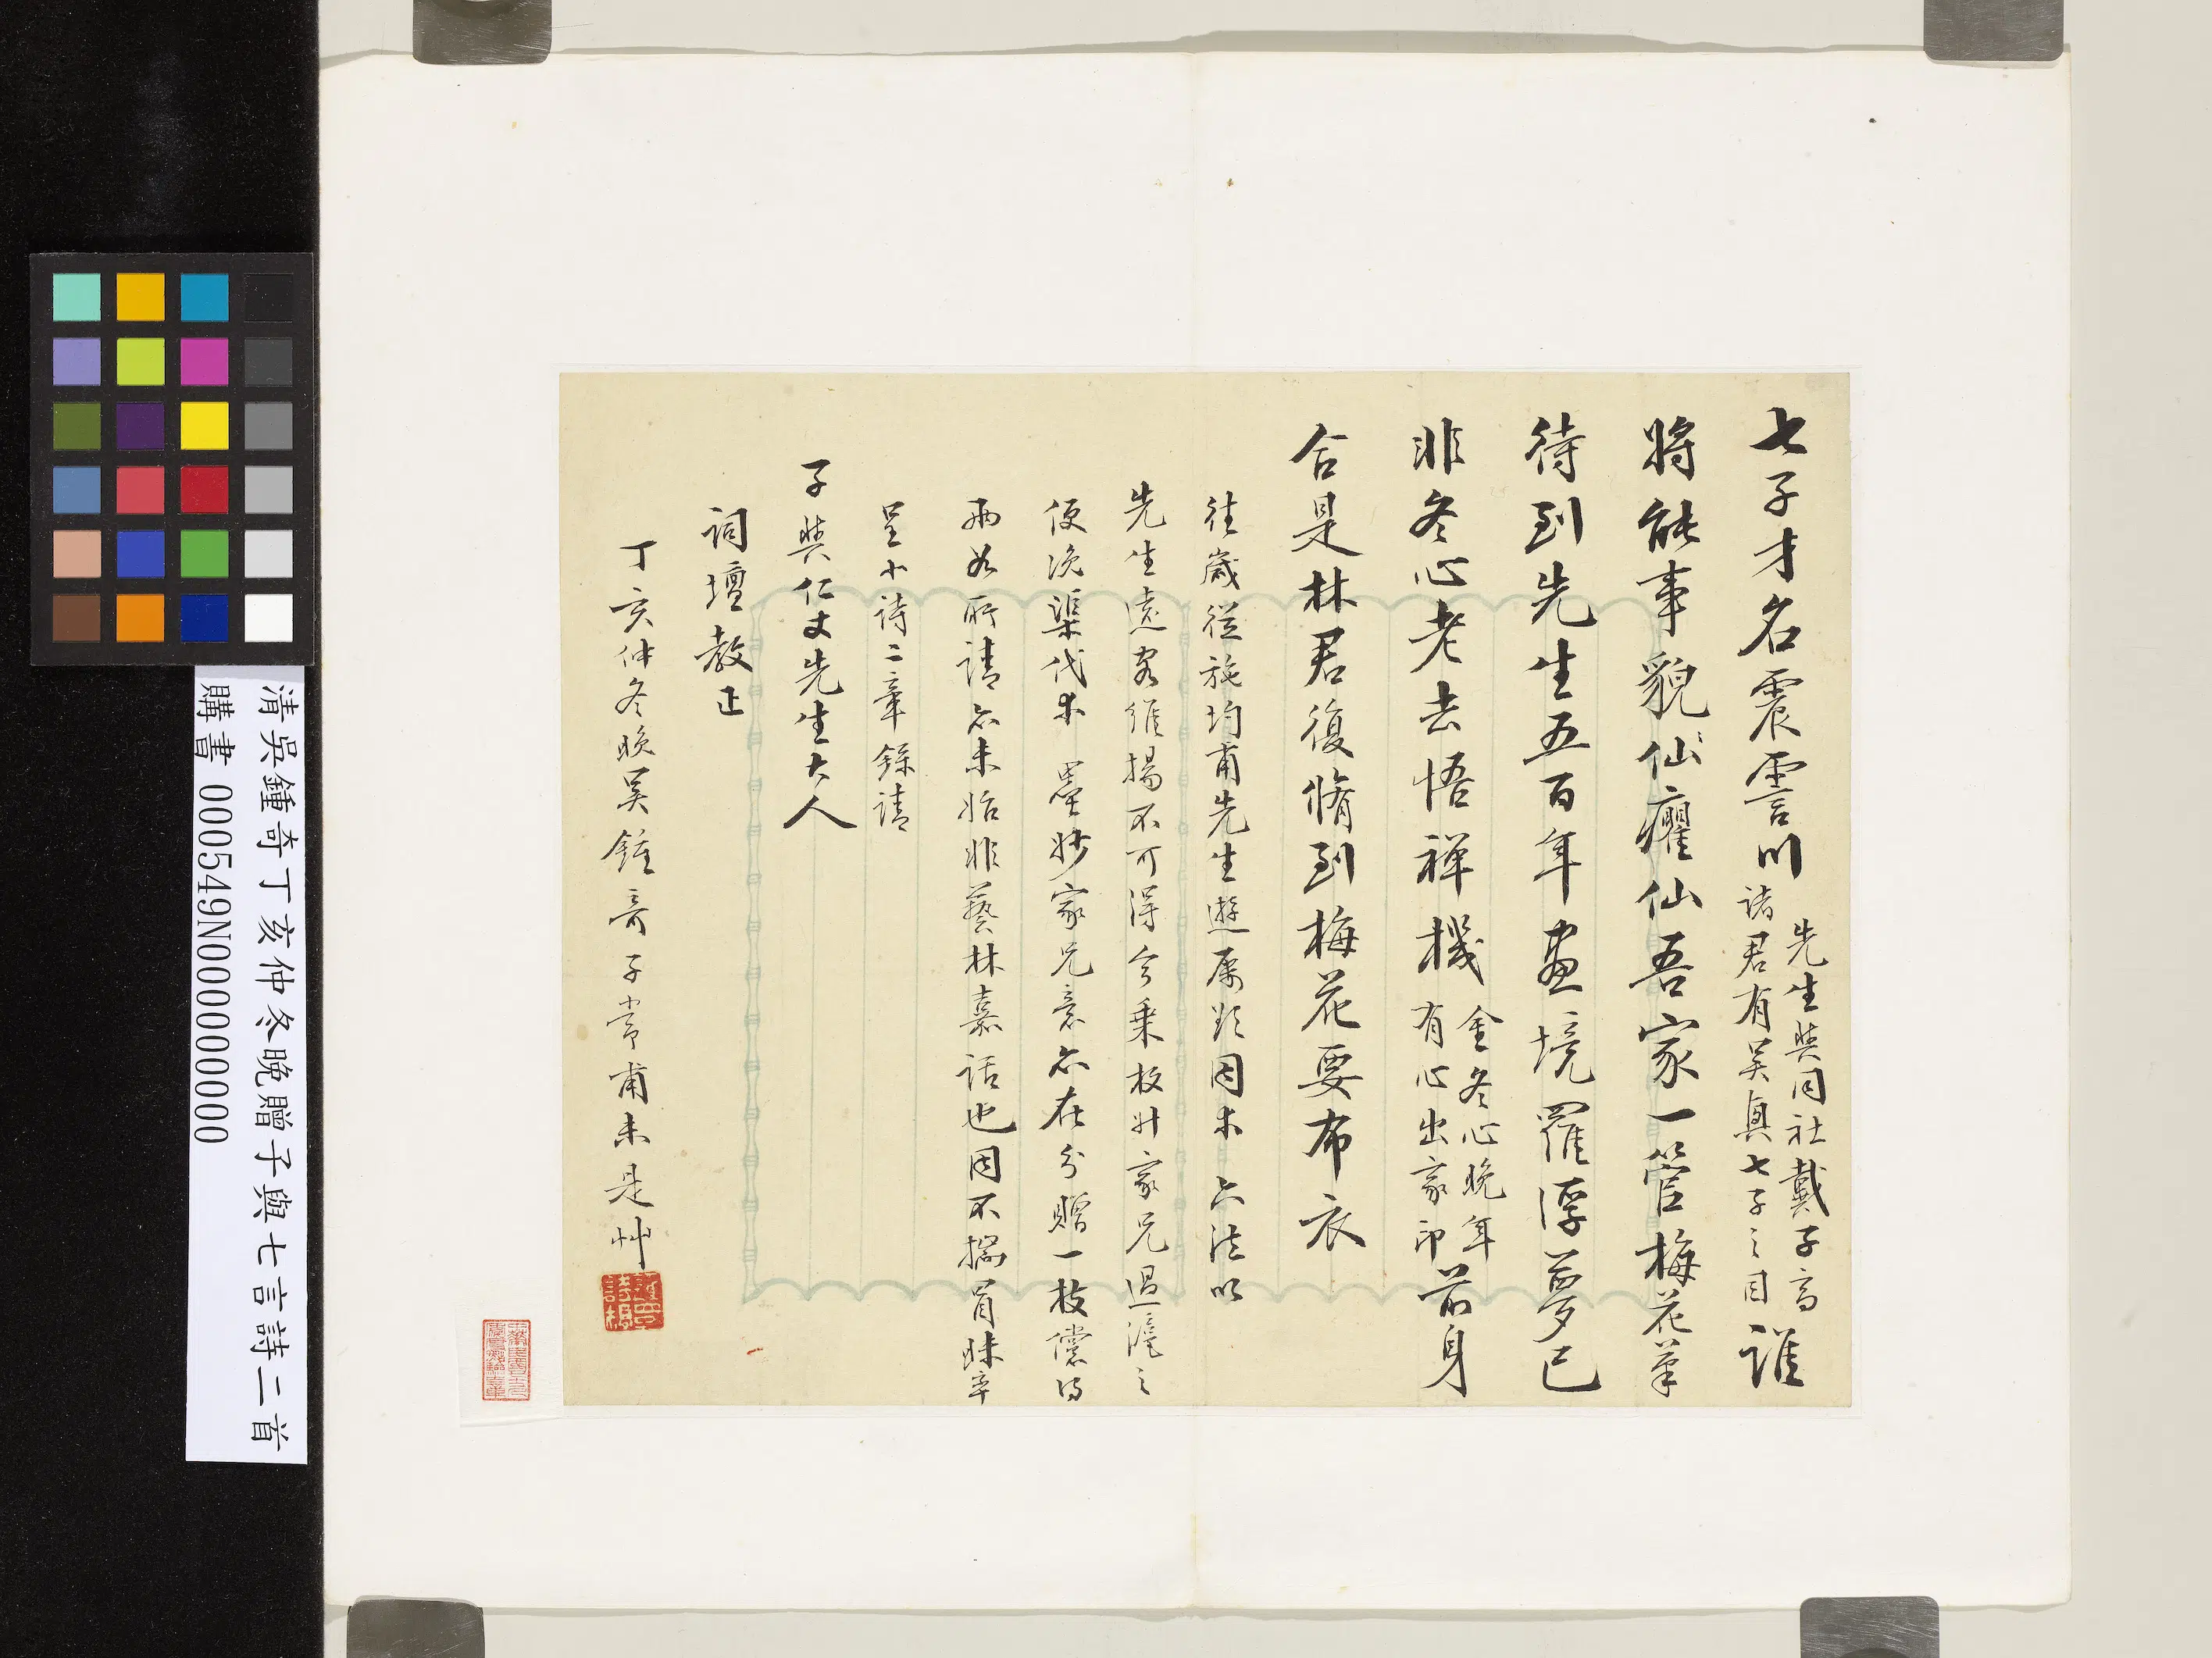 七子才名震霅川
先生與同社戴子高
諸君有吳興七子之目
誰
將能事貌仙癯仙吾家一管梅花筆
待到先生五百年畫境羅浮夢已
非冬心老去悟禪機
金冬心晚年
有心出家印
前身
合是林君復脩到梅花要布衣
往歲從施均甫先生遊屬因求六法以
先生遠客維揚不可得今乘枚升家兄過滬之
便浼渠代求 墨妙家兄意亦在分贈一枝儻得
兩如所請亦未始非藝林嘉話也因不揣冒昧率
呈小詩二章錄請
子與仁丈先生大人
詞壇教正
丁亥仲冬晚吳鍾奇子常甫未是艸
清吳鍾奇丁亥仲冬晚贈子與七言詩二首
購書 0005549N000000000